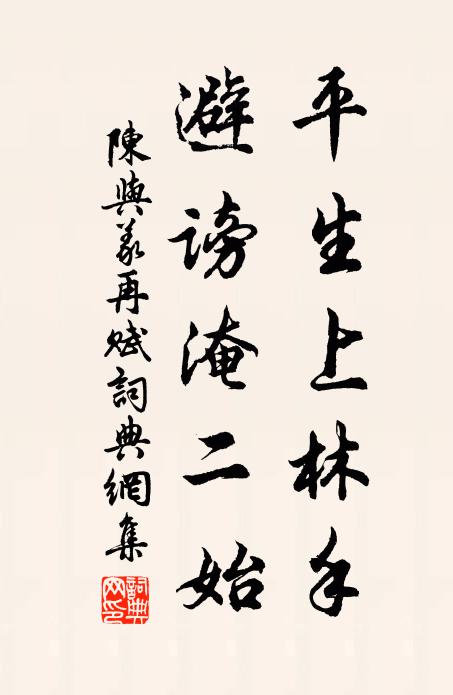 平生上林手
避謗淹二始
陳與義再賦詞典網集
詞典網印